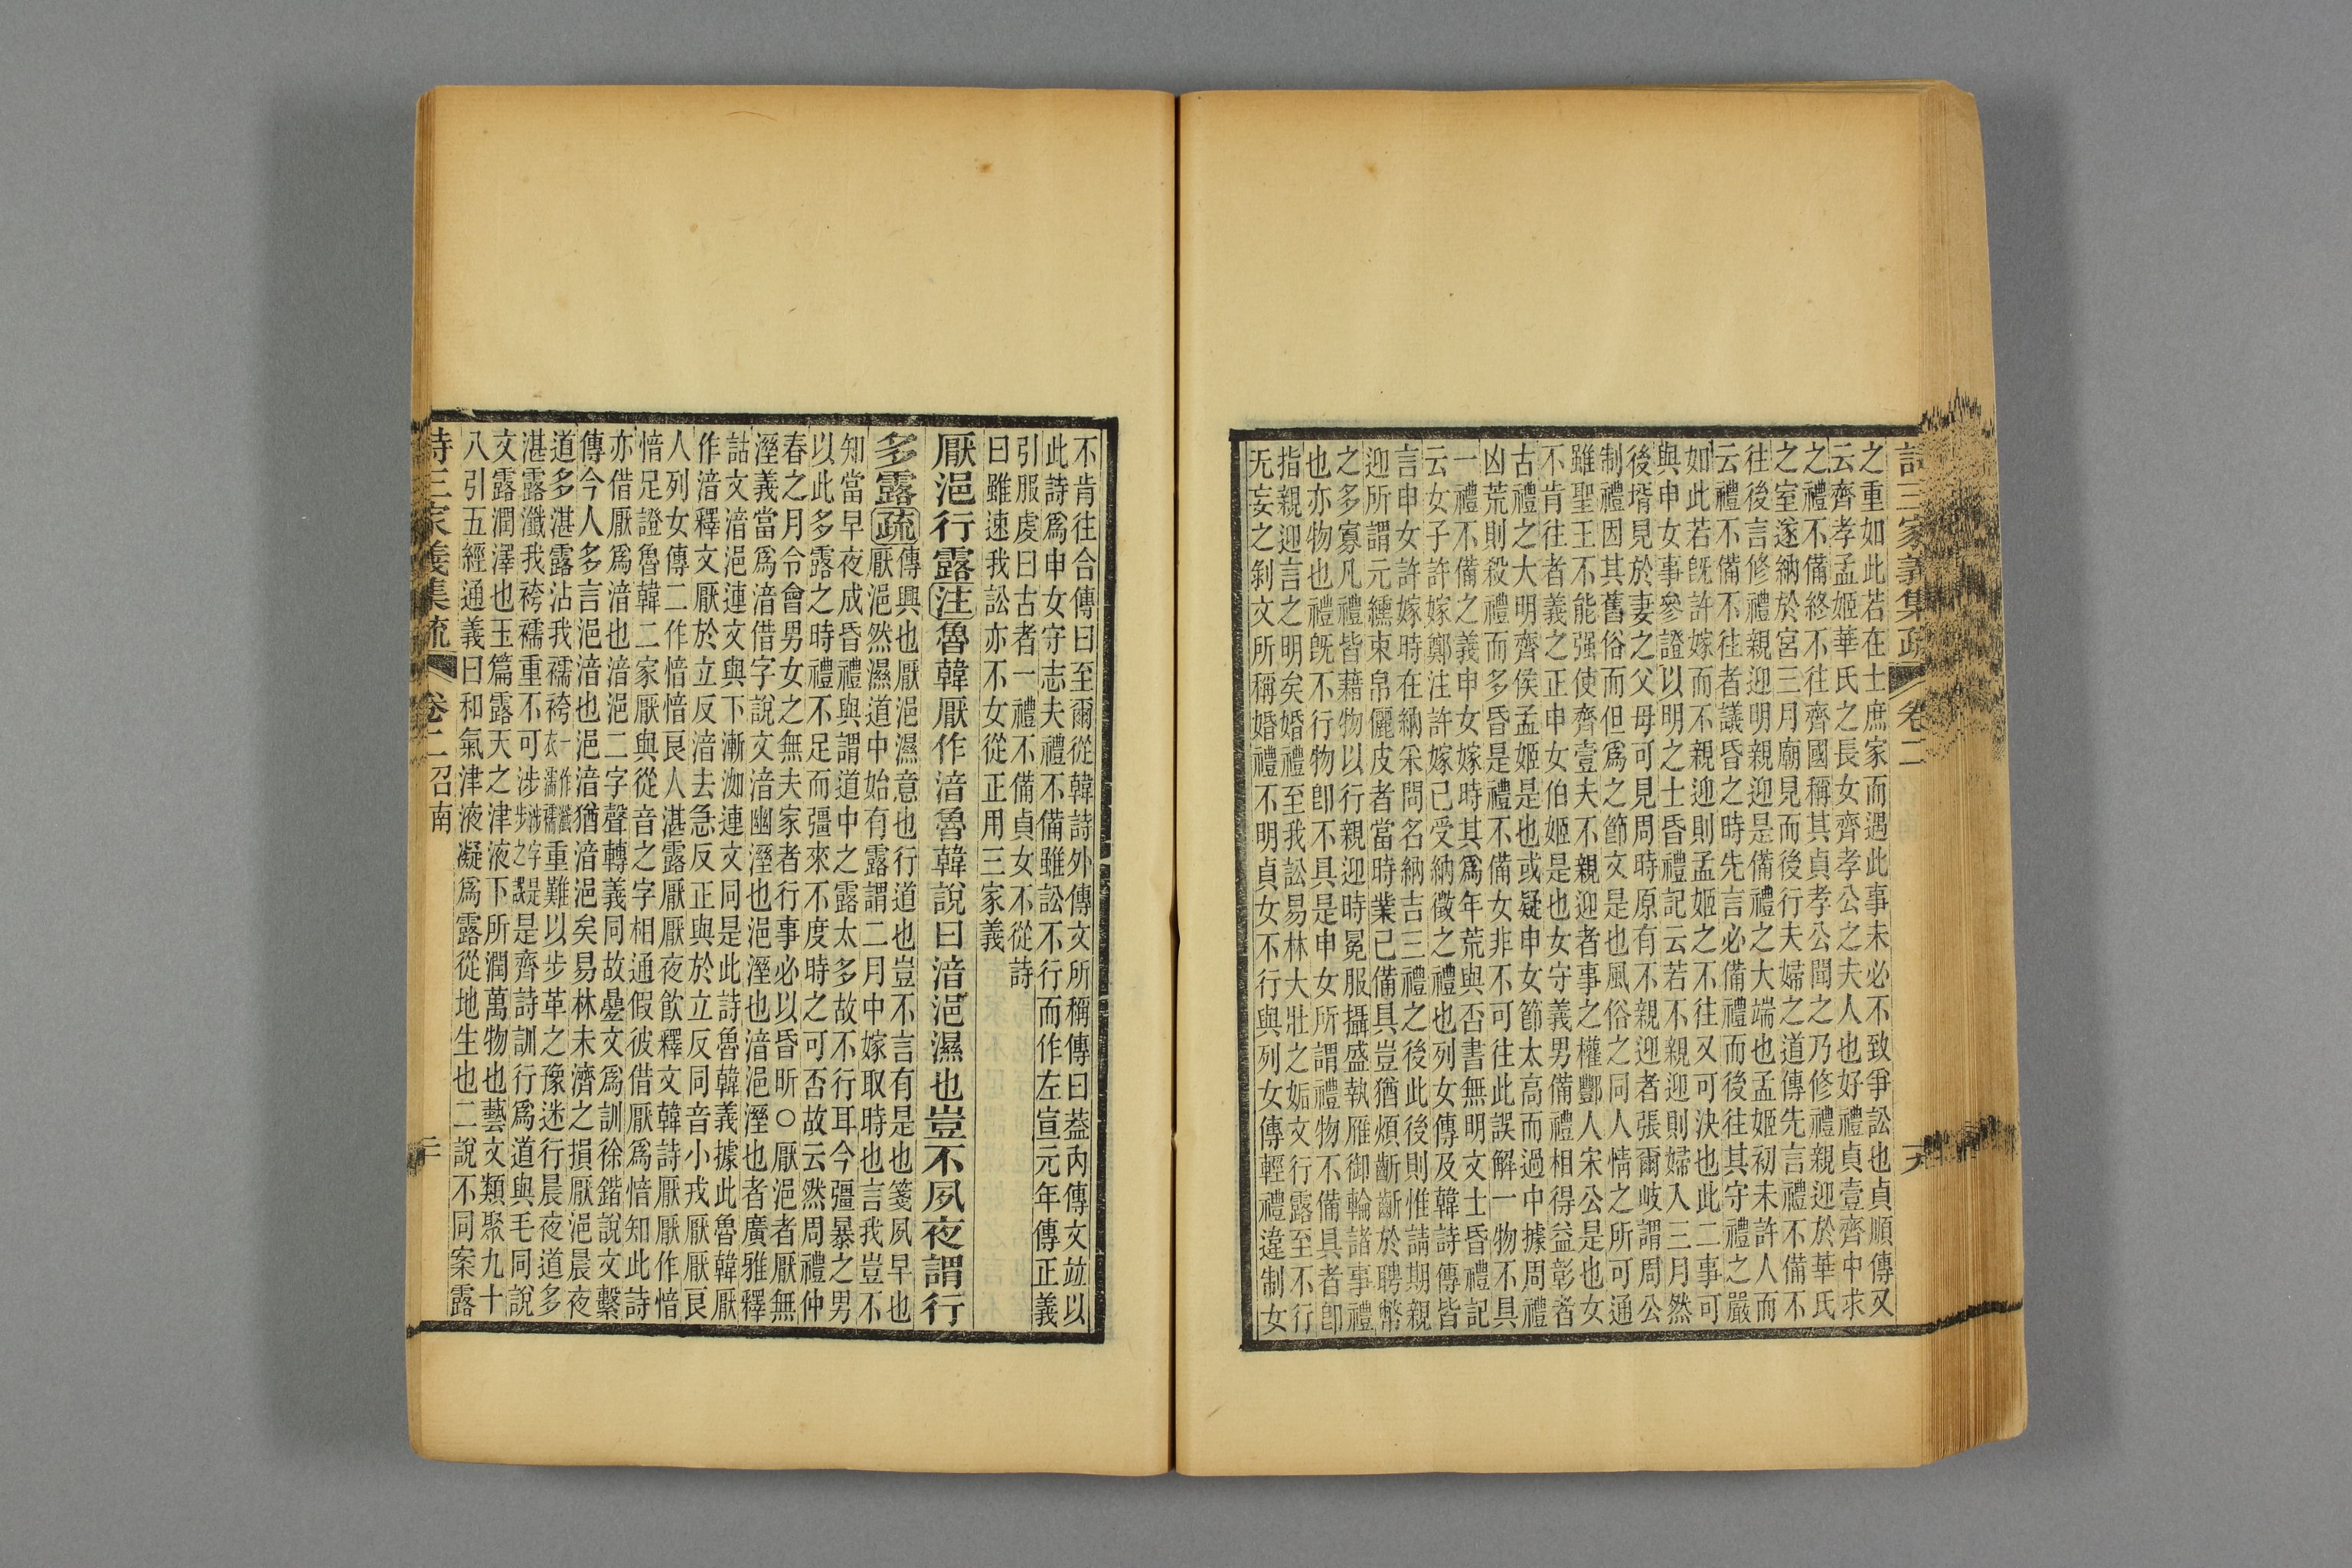 詩三家義集疏 卷二 十九
之重如此若在士庶家而遇此事未必不致爭訟也貞順傳又
云齊孝孟姬華氏之長女齊孝公之夫人也好禮貞壹齊中求
之禮不備終不往齊國稱其貞孝公聞之乃修禮親迎於華氏
之室遂納於宮三月廟見而後行夫婦之道傳先言禮不備不
往後言修禮親迎明親迎是備禮之大端也孟姬初未許人而
云禮不備不往者議昏之時先言必備禮而後往其守禮之嚴
如此若旣許嫁而不親迎則孟姬之不往又可決也此二事可
與申女事參證以明之士昏禮記云若不親迎則婦入三月然
後壻見於妻之父母可見周時原有不親迎者張爾岐謂周公
制禮因其舊俗而但爲之節文是也風俗之同人情之所可通
雖聖王不能强使齊壹夫不親迎者事之權酆人宋公是也女
不肯往者義之正申女伯姬是也女守義男備禮相得益彰者
古禮之大明齊侯孟姬是也或疑申女節太高而過中據周禮
凶荒則殺禮而多昏是禮不備女非不可往此誤解一物不具
一禮不備之義申女嫁時其爲年荒與否書無明文士昏禮記
云女子許嫁鄭注許嫁已受納徵之禮也列女傳及韓詩傳皆
言申女許嫁時在納采問名納吉三禮之後此後則惟請期親
迎所謂元纁束帛儷皮者當時業已備具豈猶煩斷斷於聘幣
之多寡凡禮皆藉物以行親迎時冕服攝盛執雁御輪諸事禮
也亦物也禮旣不行物卽不具是申女所謂禮物不備具者卽
指親迎言之明矣婚禮至我訟易林大壯之姤文行露至不行
无妄之剝文所稱婚禮不明貞女不行與列女傳輕禮違制女
不肯往合傳曰至爾從韓詩外傳文所稱傳曰葢內傳文竝以
此詩爲申女守志夫禮不備雖訟不行而作左宣元年傳正義
引服虔曰古者一禮不備貞女不從詩
曰雖速我訟亦不女從正用三家義
厭浥行露注魯韓厭作湆魯韓說曰湆浥濕也豈不夙夜謂行
多露疏傳興也厭浥濕意也行道也豈不言有是也箋夙早也
厭浥然濕道中始有露謂二月中嫁取時也言我豈不
知當早夜成昏禮與謂道中之露太多故不行耳今彊暴之男
以此多露之時禮不足而彊來不度時之可否故云然周禮仲
春之月令會男女之無夫家者行事必以昏昕○厭浥者厭無
溼義當爲湆借字說文湆幽溼也浥溼也湆浥溼也者廣雅釋
詁文湆浥連文與下漸洳連文同是此詩魯韓義據此魯韓厭
作湆釋文厭於立反湆去急反正與於立反同音小戎厭厭良
人列女傳二作愔愔良人湛露厭厭夜飮釋文韓詩厭厭作愔
愔足證魯韓二家厭與從音之字相通假彼借厭爲愔知此詩
亦借厭爲湆也湆浥二字聲轉義同故㬪文爲訓徐鍇說文繫
傳今人多言浥湆也浥湆猶湆浥矣易林未濟之損厭浥晨夜
道多湛露沾我襦袴一作瀸衣濡襦重難以步革之豫迷行晨夜道多
湛露瀸我袴襦重不可涉涉字是步之誤是齊詩訓行爲道與毛同說
文露潤澤也玉篇露天之津液下所潤萬物也藝文類聚九十
八引五經通義曰和氣津液凝爲露從地生也二說不同案露
詩三家義集疏 卷二 召南 二十